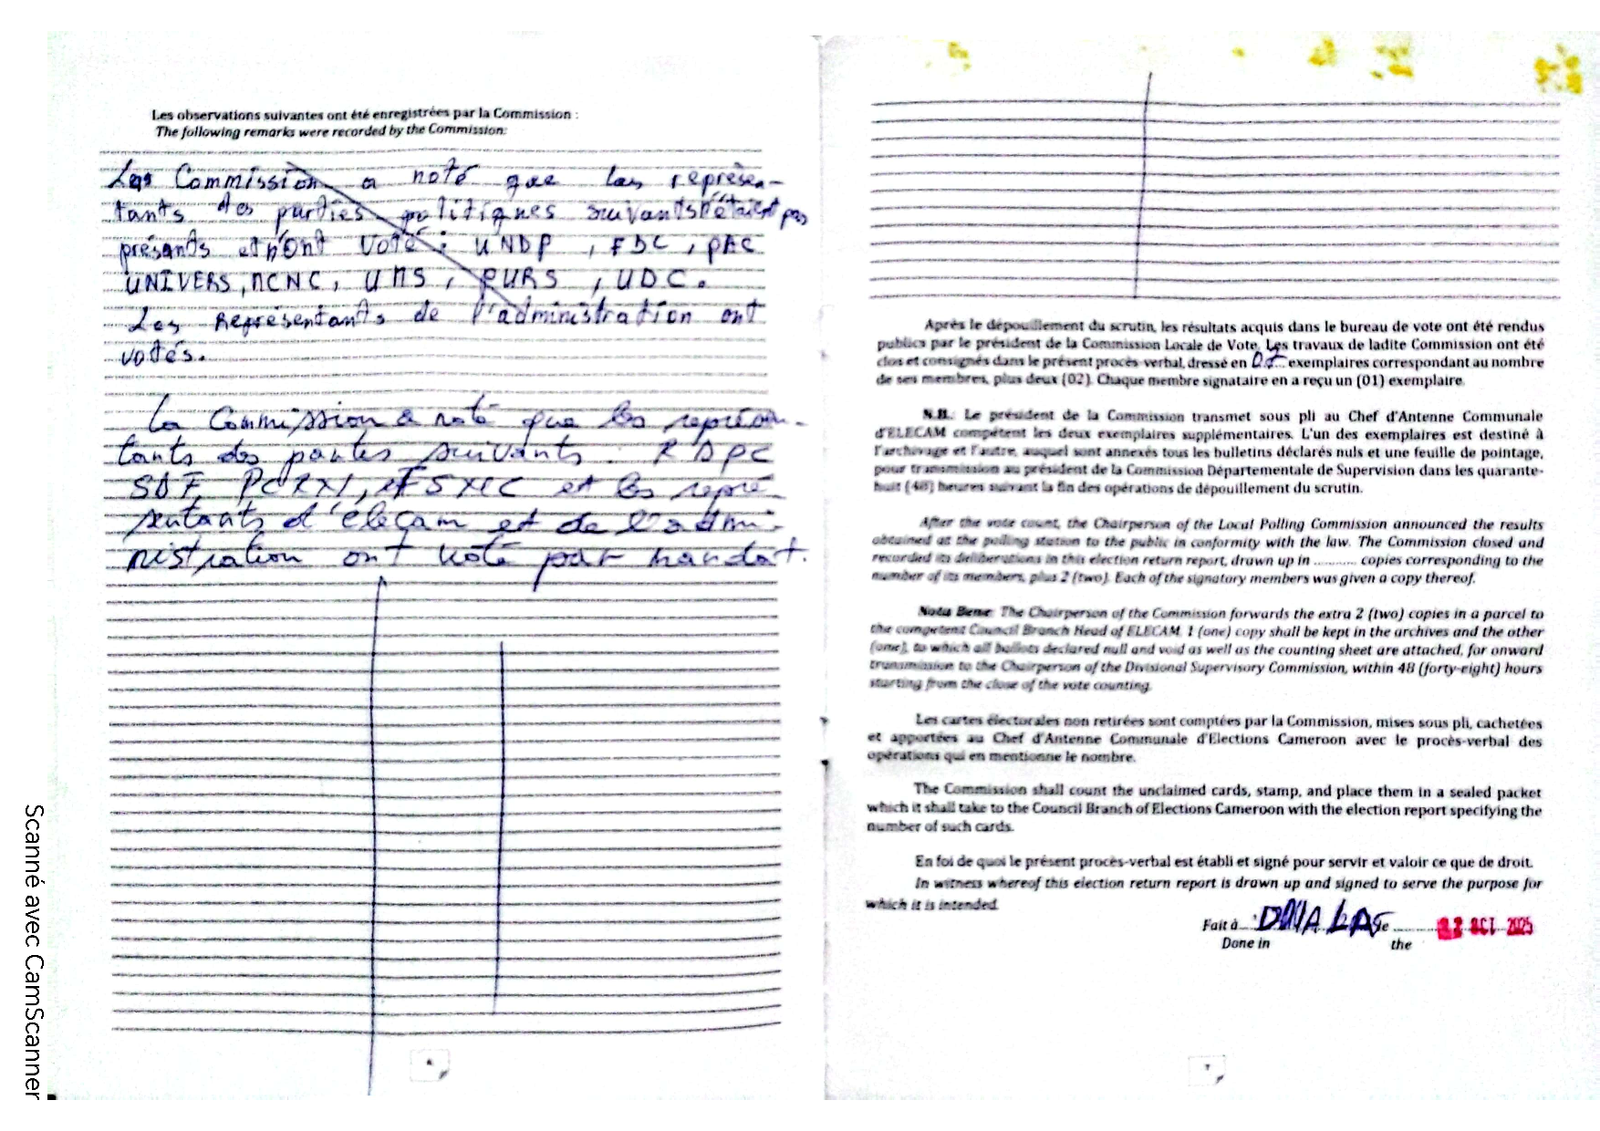 Les observations suivantes ont été enregistrées par la Commission :
The following remarks were recorded by the Commission:
Las Commission a noté que les représen-
tants des parties politiques suivants n'étaient pas
présants et n'ont voté : UNDP , FDC , PAC
UNIVERS, MCNC, UMS , PURS , UDC.
Les Représentants de l'administration ont
votés.
La Commission a noté que les représen-
tants des partes suivants : RDPC
SDF, PCRN, FSNC et les repré-
sentants d'éleçam et de l'admi-
nistration ont voté par mandat.
6
Après le dépouillement du scrutin, les résultats acquis dans le bureau de vote ont été rendus
publics par le président de la Commission Locale de Vote. Les travaux de ladite Commission ont été
clos et consignés dans le présent procès-verbal, dressé en exemplaires correspondant au nombre
de ses membres, plus deux (02). Chaque membre signataire en a reçu un (01) exemplaire.
N.B.: Le président de la Commission transmet sous pli au Chef d'Antenne Communale
d'ELECAM compétent les deux exemplaires supplémentaires. L'un des exemplaires est destiné à
l'archivage et l'autre, auquel sont annexés tous les bulletins déclarés nuls et une feuille de pointage,
pour transmission au président de la Commission Départementale de Supervision dans les quarante-
huit (48) heures suivant la fin des opérations de dépouillement du scrutin.
After the vote count, the Chairperson of the Local Polling Commission announced the results
obtained at the polling station to the public in conformity with the law. The Commission closed and
recorded its deliberations in this election return report, drawn up in ........... copies corresponding to the
number of its members, plus 2 (two). Each of the signatory members was given a copy thereof.
Nota Bene: The Chairperson of the Commission forwards the extra 2 (two) copies in a parcel to
the competent Council Branch Head of ELECAM. 1 (one) copy shall be kept in the archives and the other
(one), to which all ballots declared null and void as well as the counting sheet are attached, for onward
transmission to the Chairperson of the Divisional Supervisory Commission, within 48 (forty-eight) hours
starting from the close of the vote counting.
Les cartes électorales non retirées sont comptées par la Commission, mises sous pli, cachetées
et apportées au Chef d'Antenne Communale d'Elections Cameroon avec le procès-verbal des
opérations qui en mentionne le nombre.
The Commission shall count the unclaimed cards, stamp, and place them in a sealed packet
which it shall take to the Council Branch of Elections Cameroon with the election report specifying the
number of such cards.
En foi de quoi le présent procès-verbal est établi et signé pour servir et valoir ce que de droit.
In witness whereof this election return report is drawn up and signed to serve the purpose for
which it is intended.
Fait à DOUALA, le 12 OCT 2025
Done in the
7
Scanné avec CamScanner